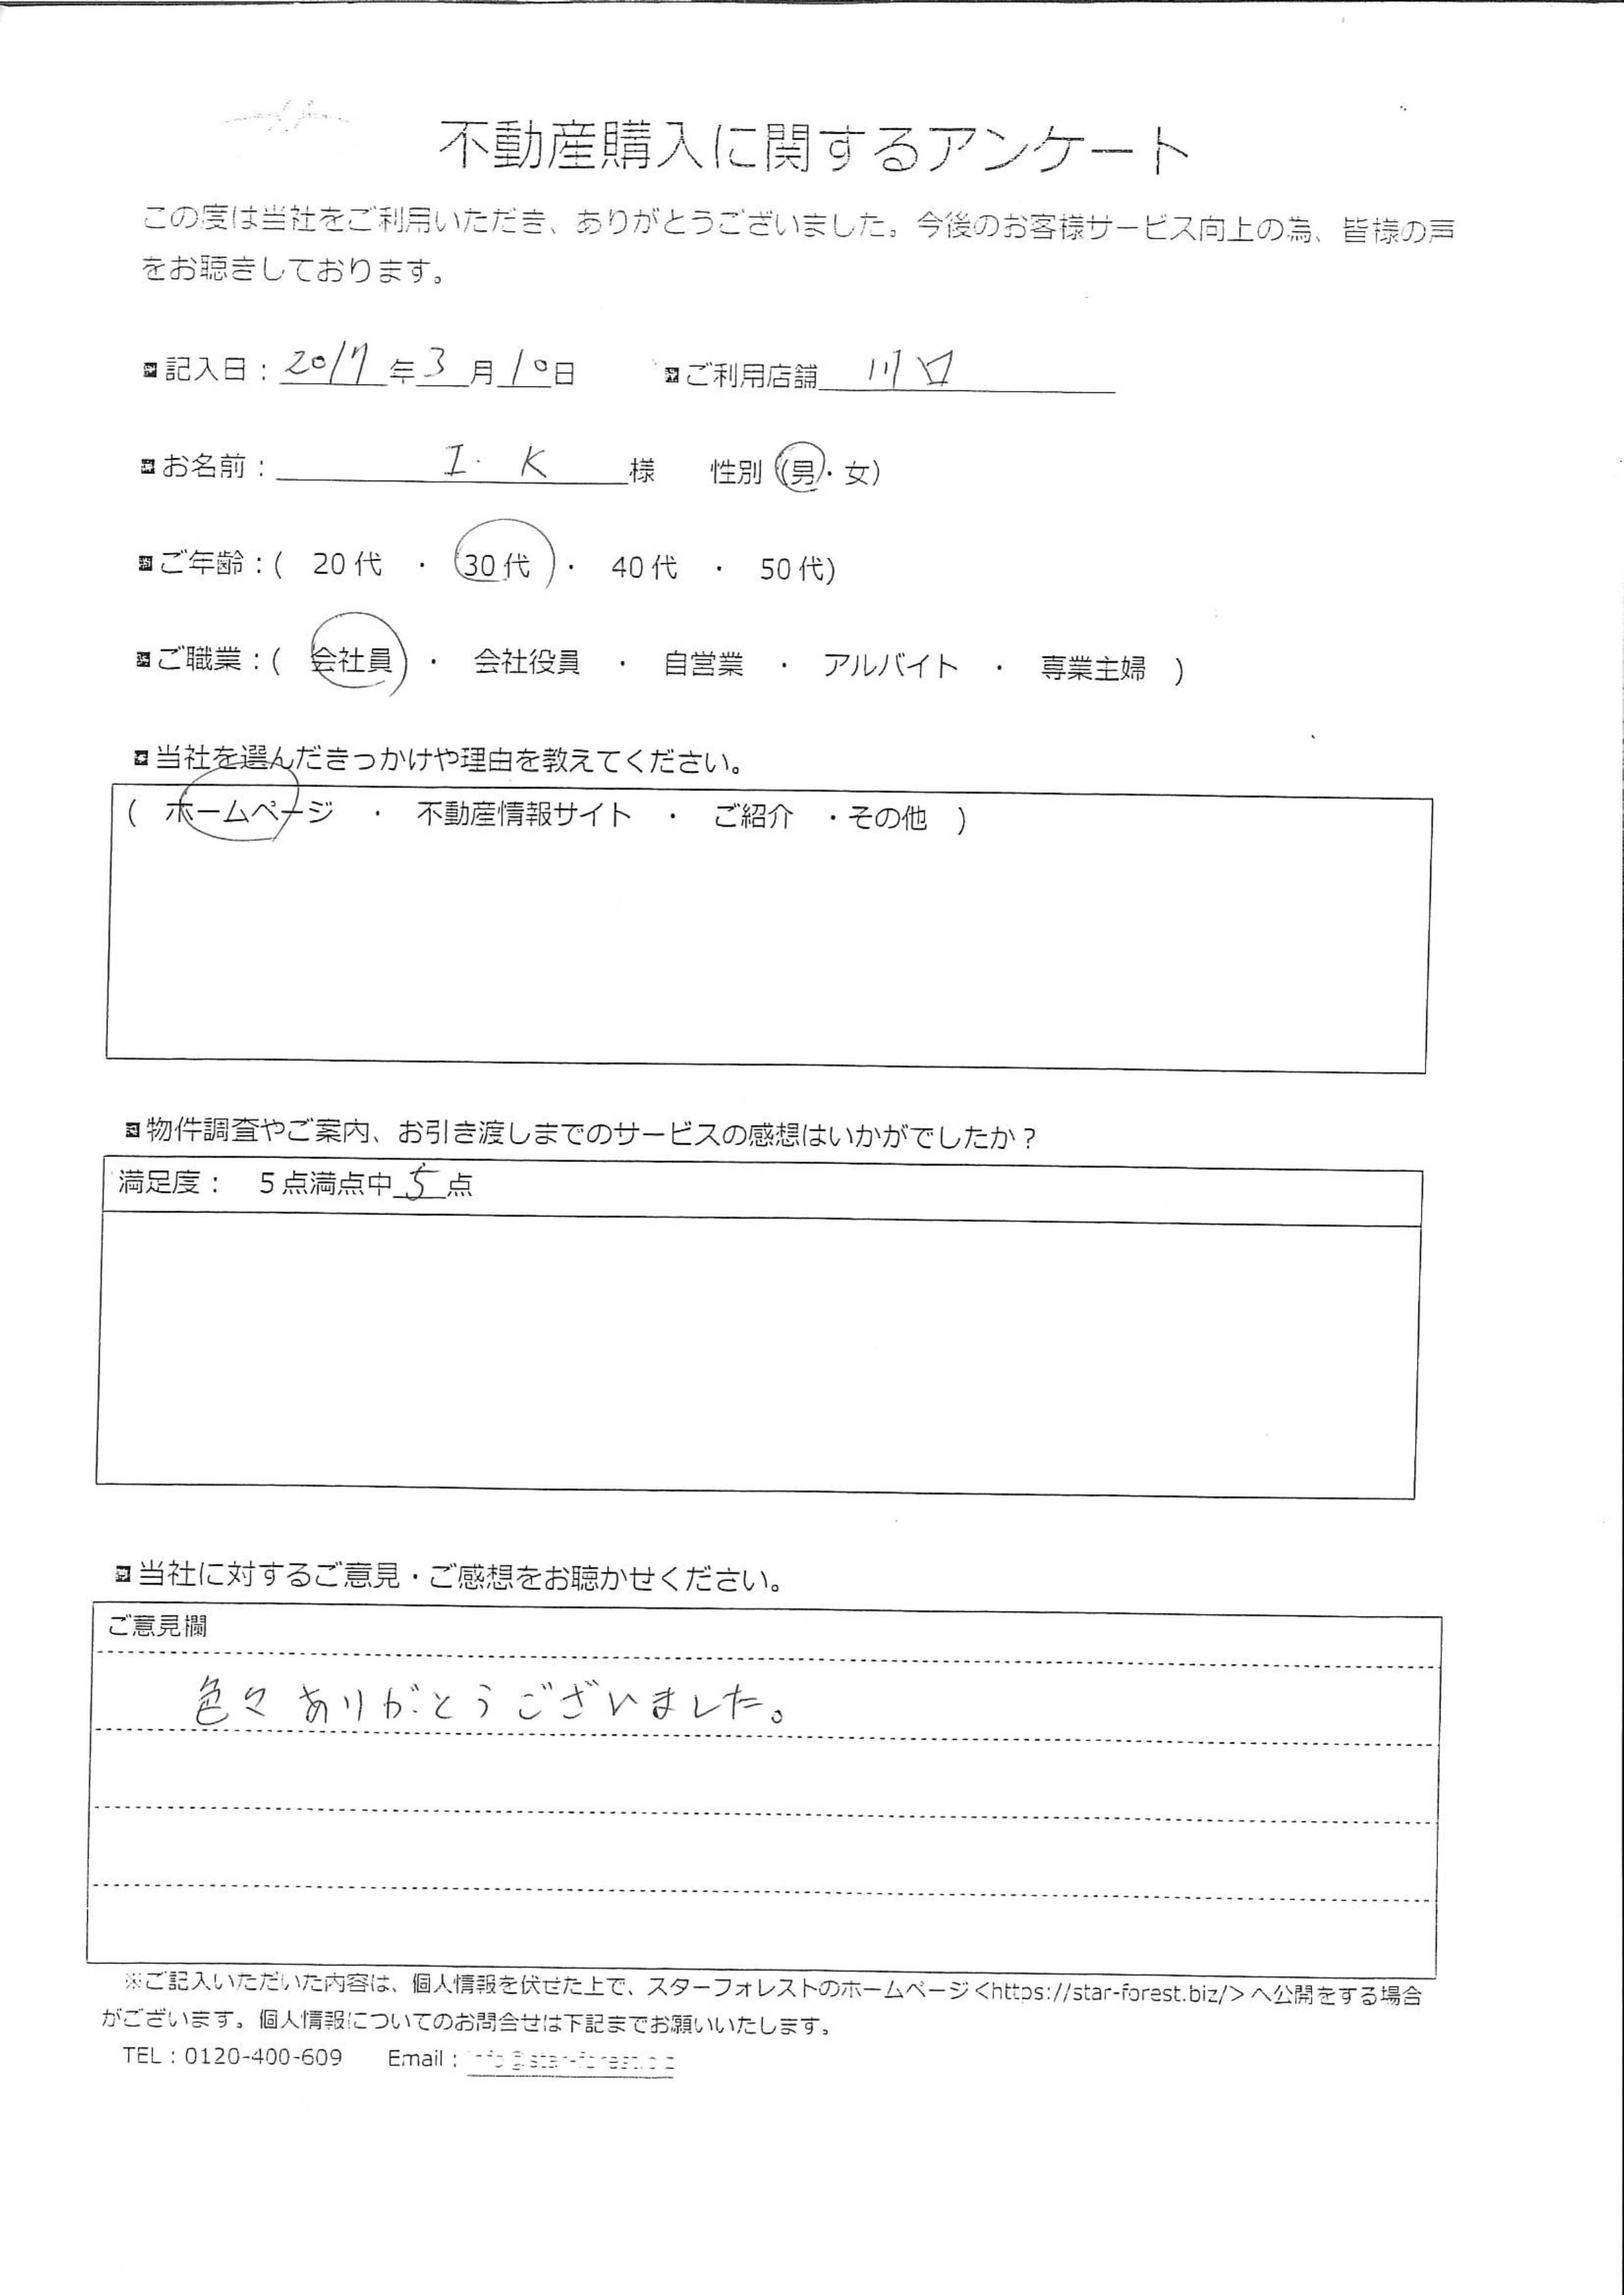 不動産購入に関するアンケート
この度は当社をご利用いただき、ありがとうございました。今後のお客様サービス向上の為、皆様の声
をお聴きしております。
記入日：2017年3月10日 ご利用店舗 川口
お名前： I. K 様 性別（男・女）
ご年齢：( 20代 ・ 30代 ・ 40代 ・ 50代)
ご職業：( 会社員 ・ 会社役員 ・ 自営業 ・ アルバイト ・ 専業主婦 )
当社を選んだきっかけや理由を教えてください。
( ホームページ ・ 不動産情報サイト ・ ご紹介 ・その他 )
物件調査やご案内、お引き渡しまでのサービスの感想はいかがでしたか？
満足度： 5点満点中 5 点
当社に対するご意見・ご感想をお聴かせください。
ご意見欄
色々ありがとうございました。
※ご記入いただいた内容は、個人情報を伏せた上で、スターフォレストのホームページ<https://star-forest.biz/>へ公開をする場合
がございます。個人情報についてのお問合せは下記までお願いいたします。
TEL：0120-400-609 Email：info@star-forest.biz